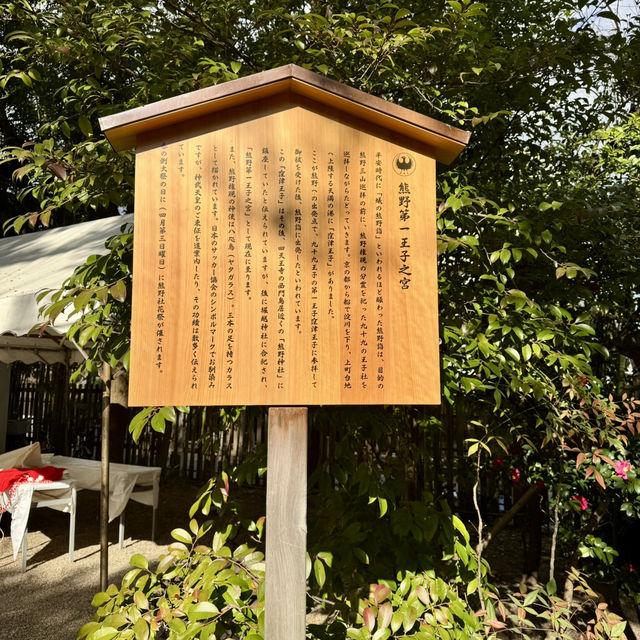 熊野第一王子之宮
平安時代に「蟻の熊野詣」といわれるほど賑わった熊野詣は、目的の
熊野三山巡拝の前に、熊野権現の分霊を祀った九十九の王子社を
巡拝しながらたどっていきます。京の都から船で淀川を下り、上町台地
へ上陸する天満の港に「窪津王子」がありました。
ここが熊野への出発点で、九十九王子の第一王子窪津王子に参拝して
御祓を受けた後、熊野詣に出発したといわれています。
この「窪津王子」は其の後、四天王寺の西門鳥居近くの「熊野神社」に
鎮座していたと伝えられていますが、後に堀越神社に合祀され、
「熊野第一王子之宮」として現在に至ります。
また、熊野権現の神使は八咫烏（ヤタガラス）。三本の足を持つカラス
として描かれています。日本のサッカー協会のシンボルマークでお馴染み
ですが、神武天皇のご東征を道案内したり、その功績は数多く伝えられ
ています。
の例大祭の日に（四月第三日曜日）に熊野社花祭が催されます。